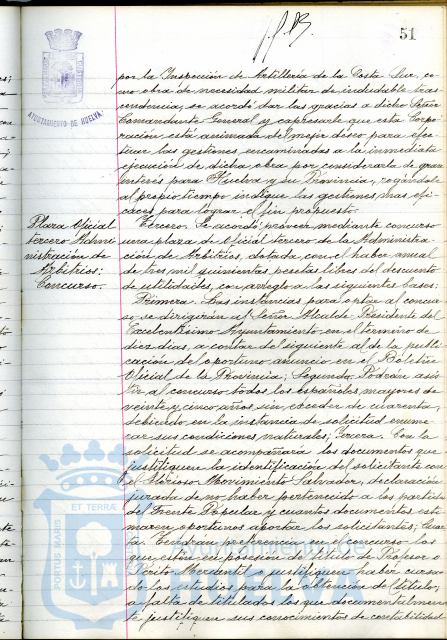 51
AYUNTAMIENTO DE HUELVA
por la Inspección de Artillería de la Costa Sur, co-
mo obra de necesidad militar de indudable tras-
cendencia, se acordó dar las gracias a dicho Señor
Comandante General y expresarle que esta Corpo-
ración está animada del mejor deseo para efec-
tuar las gestiones encaminadas a la inmediata
ejecución de dicha obra por considerarla de gran
interés para Huelva y su Provincia, rogándole
al propio tiempo indique las gestiones mas efi-
caces para lograr el fin propuesto.
Plaza Oficial
tercero Admi-
nistración de
Arbitrios;
Concurso.
Tercero. Se acordó proveer mediante concurso
una plaza de Oficial tercero de la Administra-
ción de Arbitrios, dotada con el haber anual
de tres mil quinientas pesetas libres del descuento
de utilidades, con arreglo a las siguientes bases:
Primera. Las instancias para optar al concur-
so, se dirigirán al Señor Alcalde Presidente del
Excelentísimo Ayuntamiento en el termino de
diez dias, a contar del siguiente al de la publi-
cación del oportuno anuncio en el Boletin
Oficial de la Provincia; Segunda. Podrán asis-
tir al concurso todos los españoles mayores de
veinte y cinco años sin exceder de cuarenta,
debiendo en la instancia de solicitud enume-
rar sus condiciones naturales; Tercera. Con la
solicitud se acompañará los documentos que
justifiquen la identificación del solicitante con
el Glorioso Movimiento Salvador, declaración
jurada de no haber pertenecido a los partidos
del Frente Popular y cuantos documentos esti-
maren oportunos aportar los solicitantes; Cuar-
ta. Tendrán preferencia en el concurso los
que estén en posesión de titulo de Profesor o
Perito Mercantil o justifiquen haber cursa-
do los estudios para la obtención del titulo, y
a falta de titulados los que documentalmen-
te justifiquen sus conocimientos de contabilidad
PORTUS MARIS ET TERRA
Ayuntamiento de
HUELVA